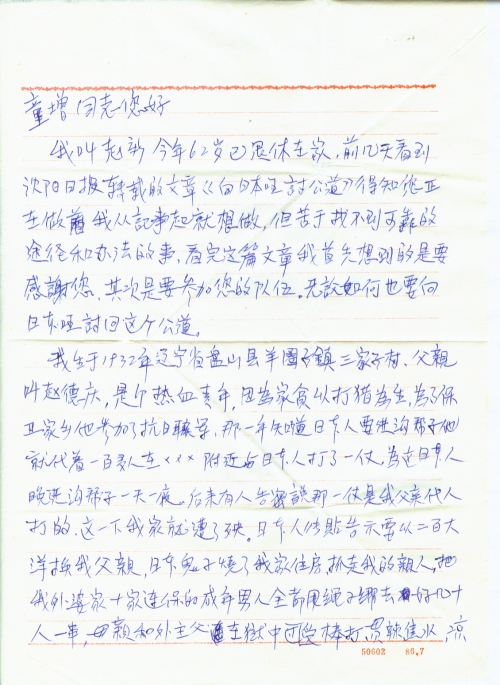 童增同志您好
我叫赵新 今年62岁已退休在家，前几天看到
沈阳日报转载的文章《向日本国讨公道》得知您正
在做着我从記事起就想做，但苦于找不到可靠的
途径和办法的事，看完这篇文章我首先想到的是要
感謝您，其次是要参加您的队伍。无論如何也要向
日本国討回这个公道。
我生于1932年辽宁省盘山县羊圈子鎮三家子村、父親
叫赵德庆，是个热血青年，因為家貧以打猎為生，為了保
卫家乡他参加了抗日联军，那一年知道日本人要进沟帮子他
就代着一百多人在××× 附近与日本人打了一仗，為这日本人
晚进沟帮子一天一夜。后来有人告密說那一仗是我父亲代人
打的、这一下我家就遭了殃。日本人張貼告示要以二百大
洋換我父親，日本鬼子燒了我家住房，抓走我的親人，把
我外婆家十家连保的成年男人全部用繩子綁去 好几十
人一串，母親和外主父 在狱中 受棒打，灌辣椒水，凉
50602 86.7